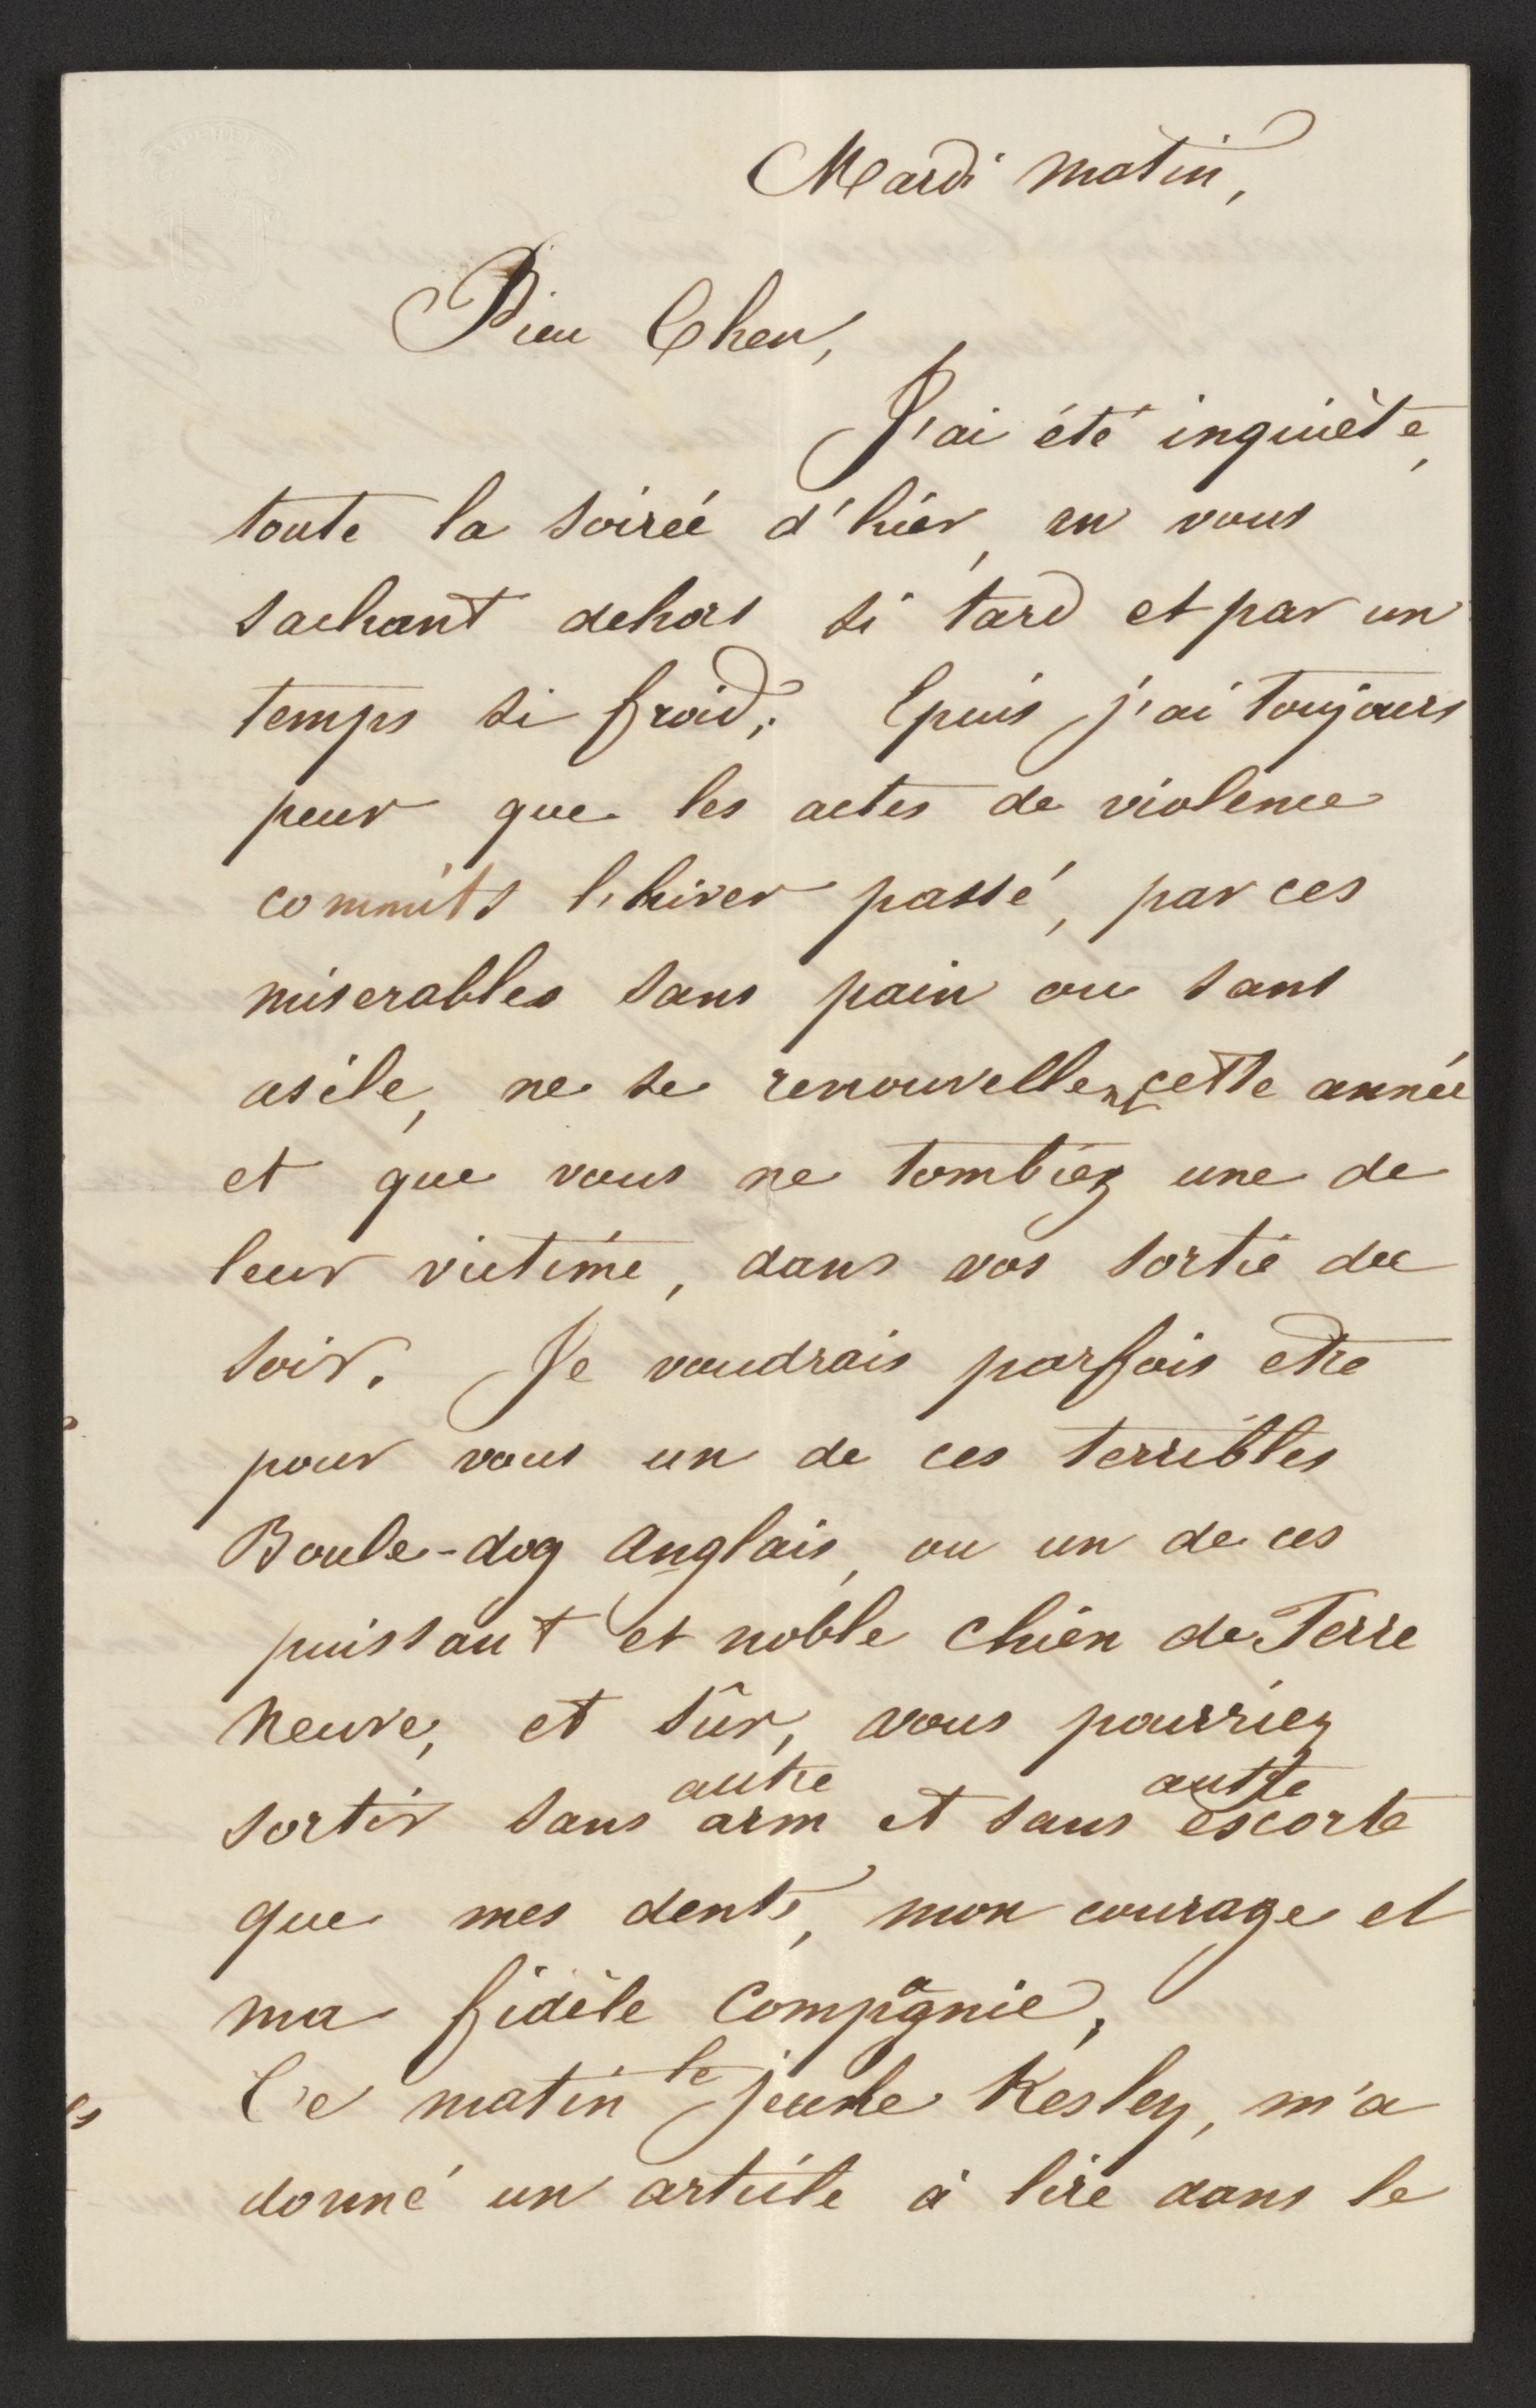 Mardi matin,
Bien Cher,
J'ai été inquiète,
toute la soirée d'hier, en vous
sachant dehors si tard et par un
temps si froid; Epuis j'ai toujours
peur que les actes de violence
commits l'hiver passé, par ces
miserables sans pain ou sans
asile, ne se renouvellent cette année
et que vous ne tombiez une de
leur victime, dans vos sortie du
soir. Je voudrais parfois etre
pour vous un de ces terribles
Boule-dog Anglais, ou un de ces
puissant et noble chien de Terre
Neuve, et sûr, vous pourriez
sortir sans autre arm et sans autre escorte
que mes dents, mon courage et
ma fidèle Compagnie,
Ce matin le jeune Kesley, m'a
donné un article à lire dans le